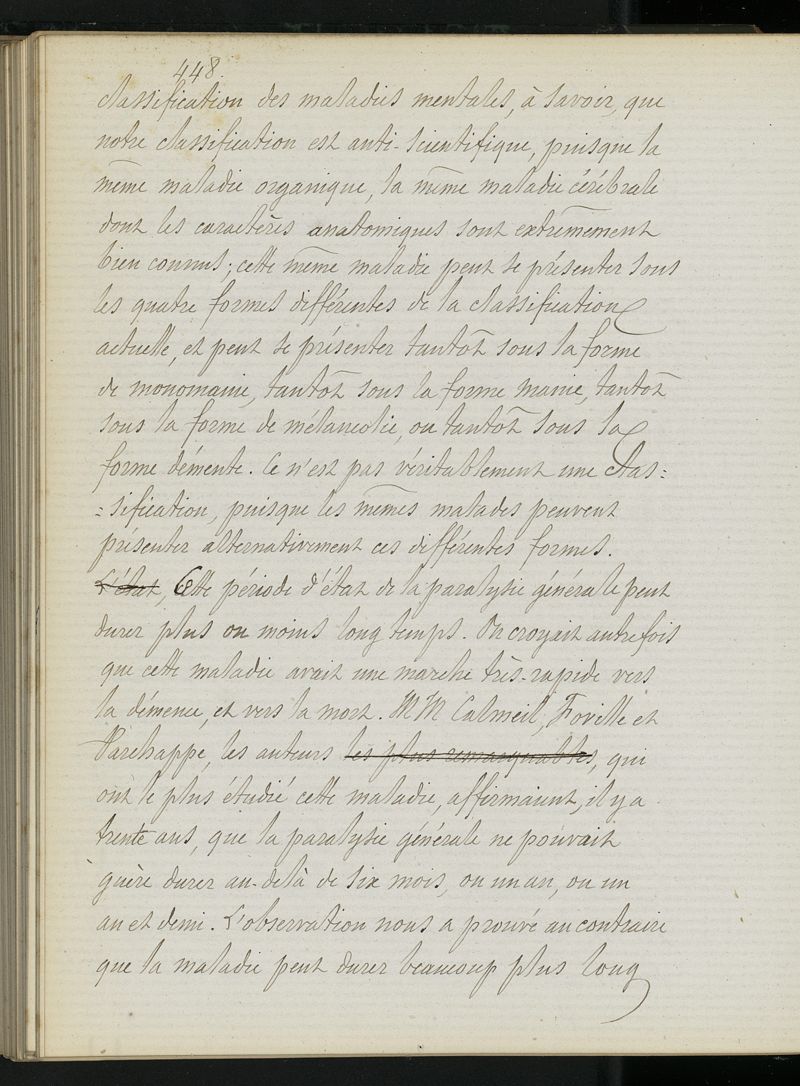 448
classification des maladies mentales, à savoir, que
notre classification est anti-scientifique, puisque la
même maladie organique, la même maladie cérébrale
dont les caractères anatomiques sont extrêmement
bien connus; cette même maladie peut se présenter sous
les quatre formes différentes de la classification
actuelle, et peut se présenter tantôt sous la forme
de monomanie, tantôt sous la forme manie, tantôt
sous la forme de mélancolie, ou tantôt sous la
forme démente. Ce n'est pas véritablement une clas=
=sification, puisque les mêmes malades peuvent
présenter alternativement ces différentes formes.
L'état, Cette période d'état de la paralysie générale peut
durer plus ou moins longtemps. On croyait autrefois
que cette maladie avait une marche très-rapide vers
la démence, et vers la mort. MM Calmeil, Foville et
Parchappe, les auteurs les plus remarquables, qui
ont le plus étudié cette maladie, affirmaient, il y a
trente ans, que la paralysie générale ne pouvait
guère durer au-delà de six mois, ou un an, ou un
an et demi. L'observation nous a prouvé au contraire
que la maladie peut durer beaucoup plus long